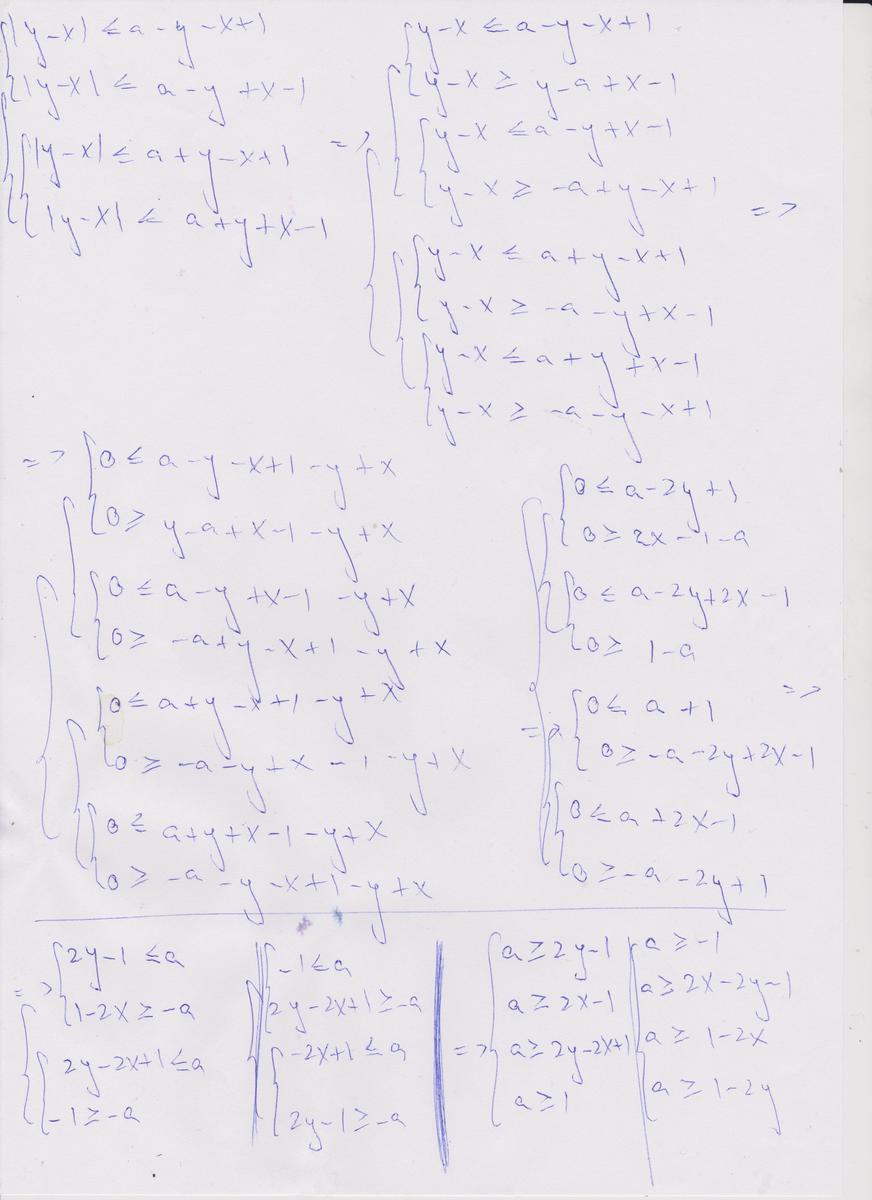 |y-x| ≤ a-y-x+1
|y-x| ≤ a-y+x-1
|y-x| ≤ a+y-x+1
|y-x| ≤ a+y+x-1
=>
y-x ≤ a-y-x+1
y-x ≥ y-a+x-1
y-x ≤ a-y+x-1
y-x ≥ -a+y-x+1
y-x ≤ a+y-x+1
y-x ≥ -a-y+x-1
y-x ≤ a+y+x-1
y-x ≥ -a-y-x+1
=>
=> 0 ≤ a-y-x+1-y+x
0 ≥ y-a+x-1-y+x
0 ≤ a-y+x-1-y+x
0 ≥ -a+y-x+1-y+x
0 ≤ a+y-x+1-y+x
0 ≥ -a-y+x-1-y+x
0 ≤ a+y+x-1-y+x
0 ≥ -a-y-x+1-y+x
=>
0 ≤ a-2y+1
0 ≥ 2x-1-a
0 ≤ a-2y+2x-1
0 ≥ 1-a
0 ≤ a+1
0 ≥ -a-2y+2x-1
0 ≤ a+2x-1
0 ≥ -a-2y+1
=>
=> 2y-1 ≤ a
1-2x ≥ -a
2y-2x+1 ≤ a
-1 ≥ -a
-1 ≤ a
2y-2x+1 ≥ -a
-2x+1 ≤ a
2y-1 ≥ -a
=>
a ≥ 2y-1
a ≥ 2x-1
a ≥ 2y-2x+1
a ≥ 1
a ≥ -1
a ≥ 2x-2y-1
a ≥ 1-2x
a ≥ 1-2y